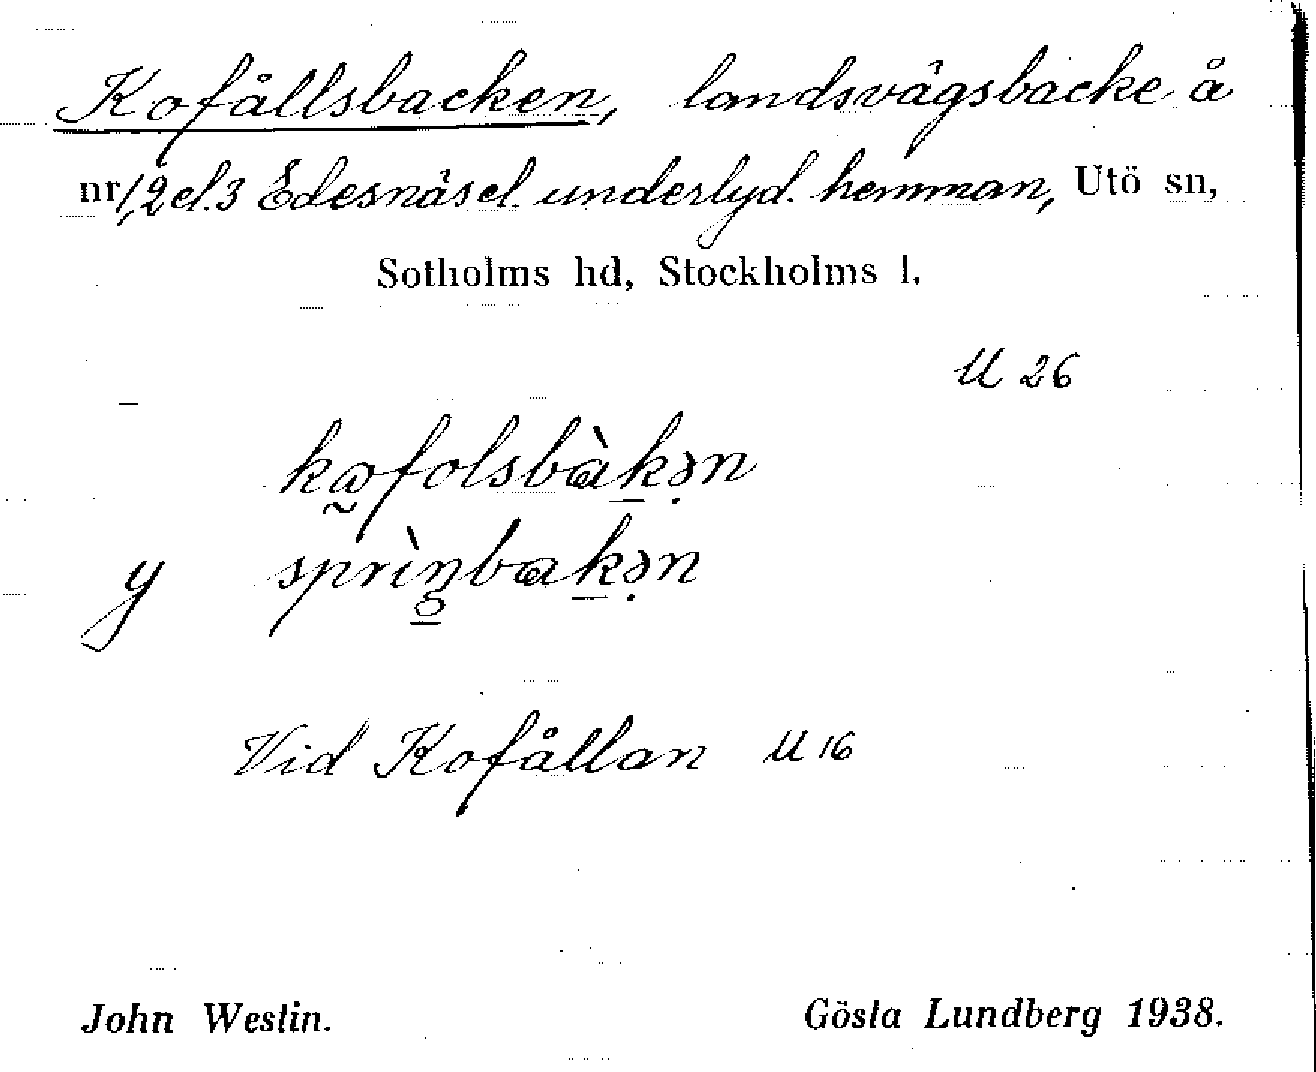 Kofållsbacken, landsvägsbacke å
nr 1, 2 el. 3 Edesnäs el. underlyd. hemman, Utö sn,
Sotholms hd, Stockholms l.
U 26
kofolsbàkən
y sprìŋbakən
Vid Kofållan U 16
John Westin. Gösta Lundberg 1938.